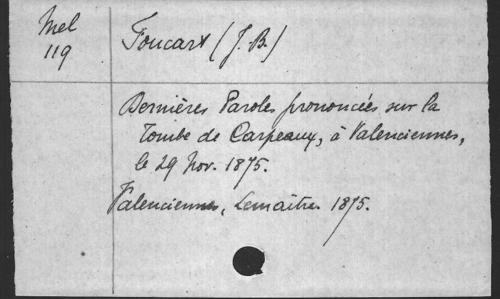 Mel
119
Foucart (J. B.)
Dernières Paroles prononcées sur la
Tombe de Carpeaux, à Valenciennes,
le 29 Nov. 1875.
Valenciennes, Lemaître. 1875.